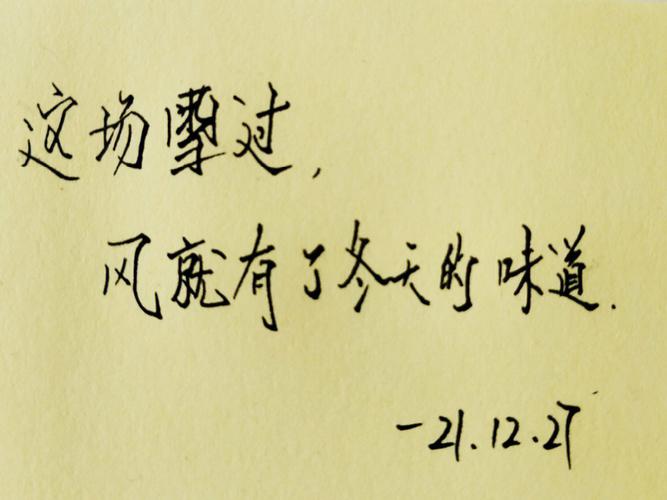 这场雪过,
风就有了冬天的味道.
-21.12.27